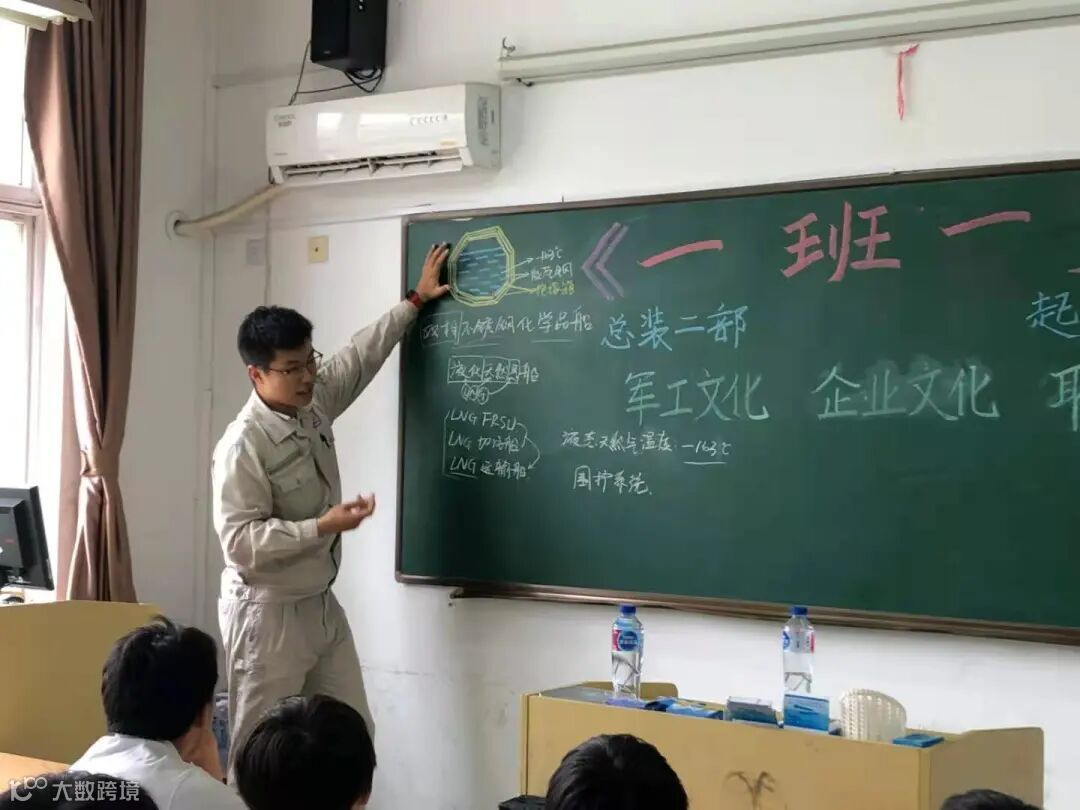 -163℃
殷瓦钢
绝缘箱
《一 班 一
双相不锈钢化学品船
总装二部
起
军工文化 企业文化 耳
液化天然气船
LNG
LNG FRSU
LNG 加注船
LNG 运输船
液态天然气温度: -163℃
围护系统
大数跨境